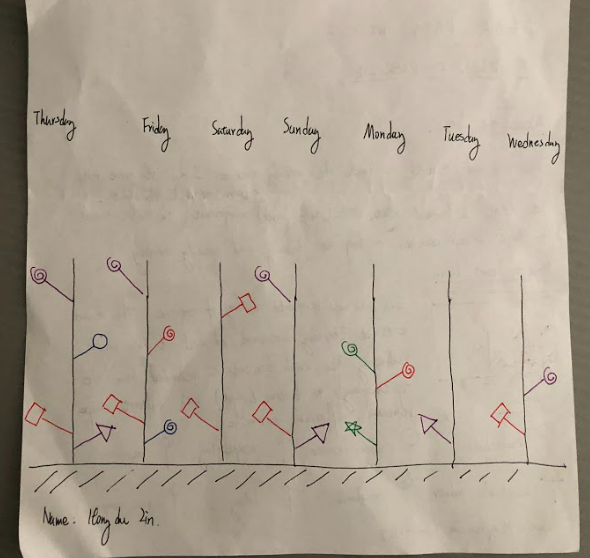 Thursday Friday Saturday Sunday Monday Tuesday Wednesday
Name: